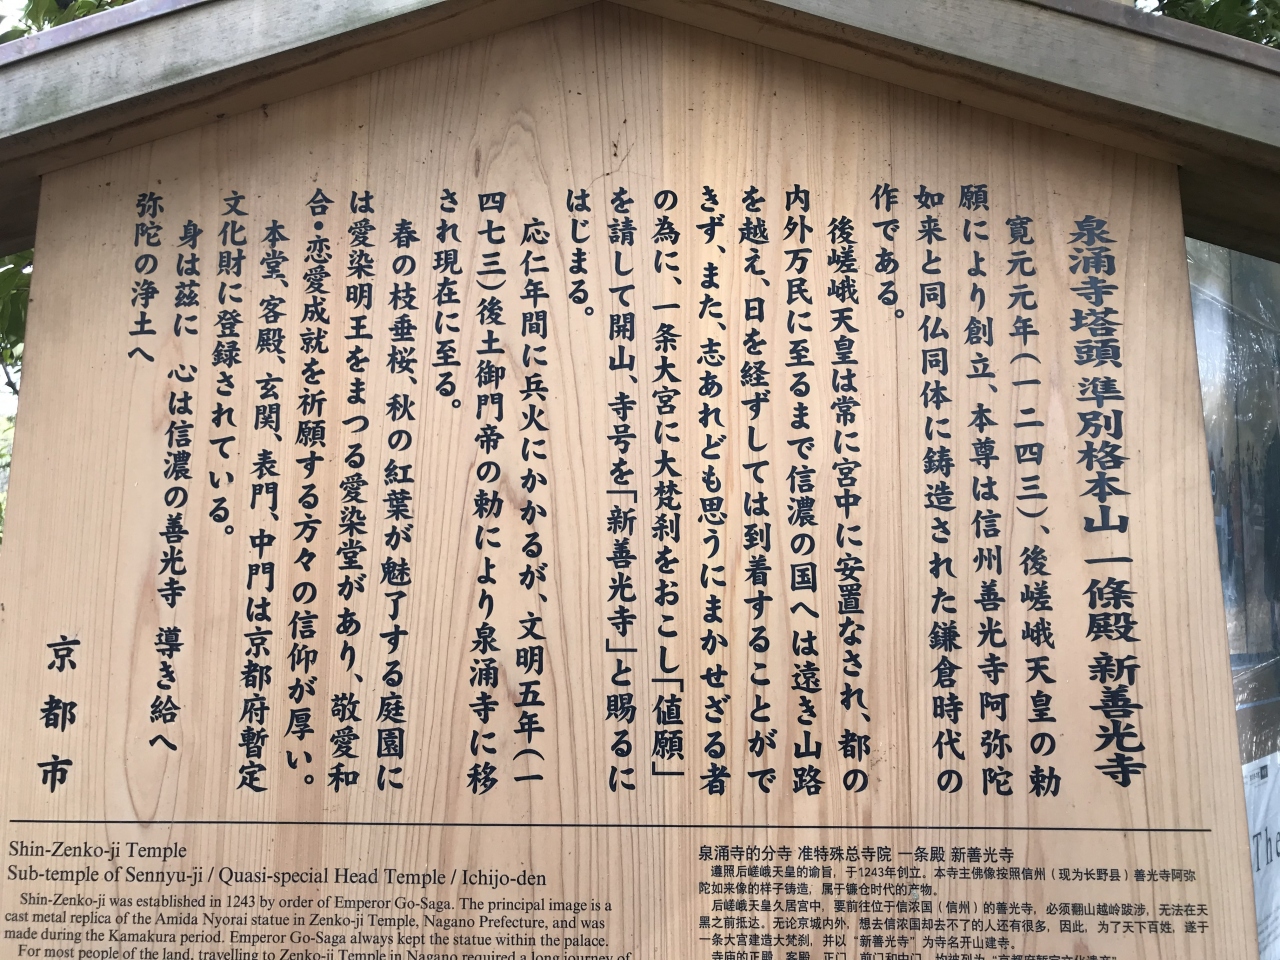 泉涌寺塔頭 準別格本山 一條殿 新善光寺
寛元元年（一二四三）、後嵯峨天皇の勅
願により創立、本尊は信州善光寺阿弥陀
如来と同仏同体に鋳造された鎌倉時代の
作である。
後嵯峨天皇は常に宮中に安置なされ、都の
内外万民に至るまで信濃の国へは遠き山路
を越え、日を経ずしては到着することがで
きず、また、志あれども思うにまかせざる者
の為に、一条大宮に大梵刹をおこし「値願」
を請して開山、寺号を「新善光寺」と賜るに
はじまる。
応仁年間に兵火にかかるが、文明五年（一
四七三）後土御門帝の勅により泉涌寺に移
され現在に至る。
春の枝垂桜、秋の紅葉が魅了する庭園に
は愛染明王をまつる愛染堂があり、敬愛和
合・恋愛成就を祈願する方々の信仰が厚い。
本堂、客殿、玄関、表門、中門は京都府暫定
文化財に登録されている。
身は茲に 心は信濃の善光寺 導き給へ
弥陀の浄土へ
京都市
Shin-Zenko-ji Temple
Sub-temple of Sennyu-ji / Quasi-special Head Temple / Ichijo-den
Shin-Zenko-ji was established in 1243 by order of Emperor Go-Saga. The principal image is a
cast metal replica of the Amida Nyorai statue in Zenko-ji Temple, Nagano Prefecture, and was
made during the Kamakura period. Emperor Go-Saga always kept the statue within the palace.
For most people of the land, travelling to Zenko-ji Temple in Nagano required a long journey of
泉涌寺的分寺 准特殊总寺院 一条殿 新善光寺
遵照后嵯峨天皇的谕旨，于1243年创立。本寺主佛像按照信州（现为长野县）善光寺阿弥
陀如来像的样子铸造，属于镰仓时代的产物。
后嵯峨天皇久居宫中，要前往位于信浓国（信州）的善光寺，必须翻山越岭跋涉，无法在天
黑之前抵达。无论京城内外，想去信浓国却去不了的人还有很多，因此，为了天下百姓，遂于
一条大宫建造大梵刹，并以“新善光寺”为寺名开山建寺。
寺庙的正殿、客殿、正门、前门和中门，均被列为“京都府暂定文化遗产”
The